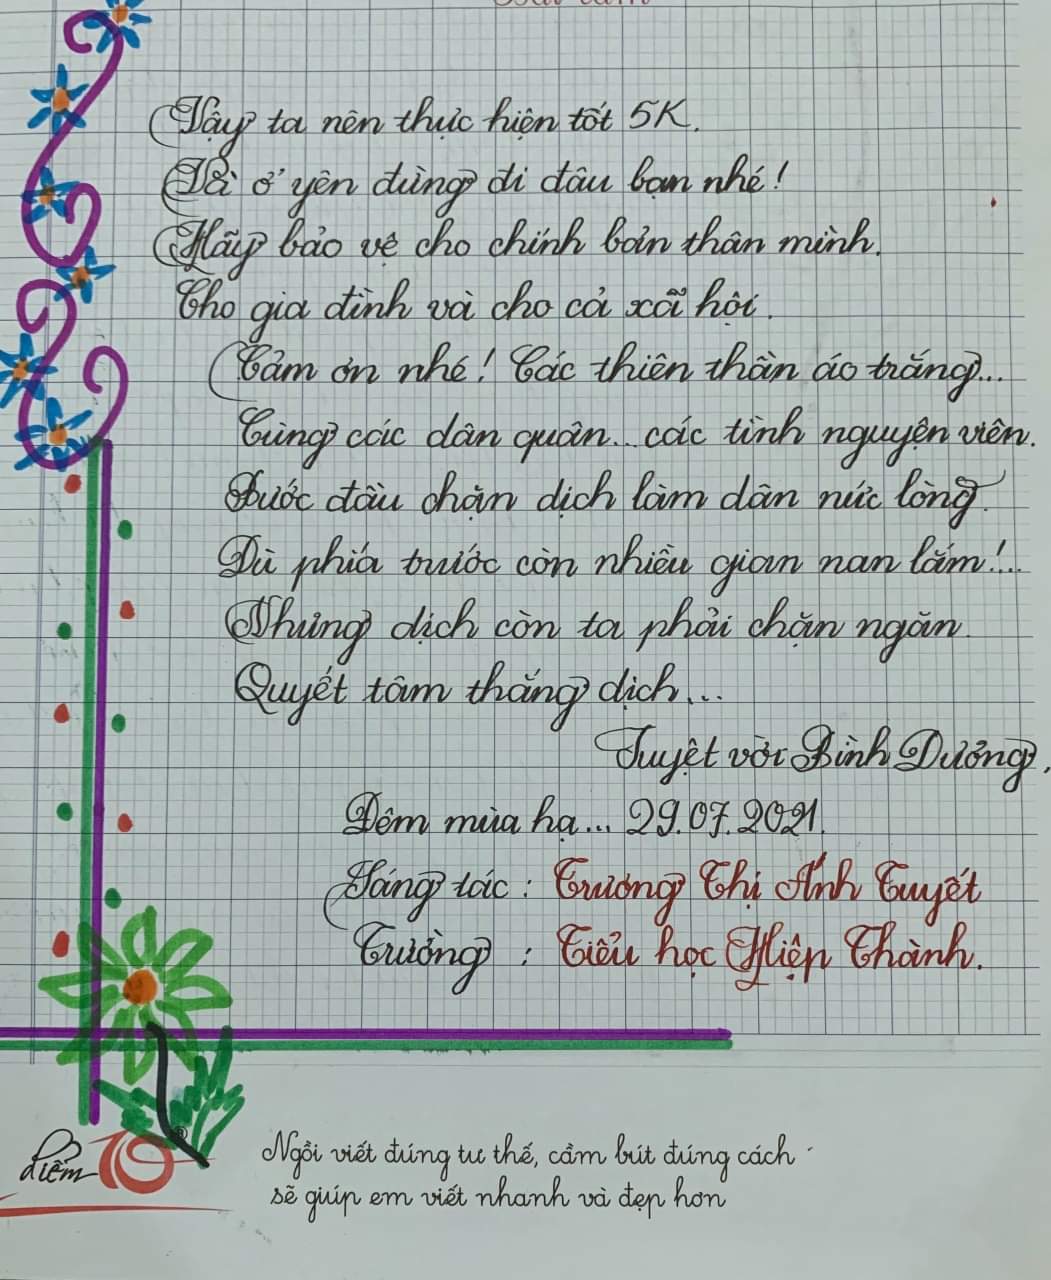 Vậy ta nên thực hiện tốt 5K.
Và ở yên đừng đi đâu bạn nhé!
Hãy bảo vệ cho chính bản thân mình.
Cho gia đình và cho cả xã hội.
Cảm ơn nhé! Các thiên thần áo trắng...
Cùng các dân quân... các tình nguyện viên.
Bước đầu chặn dịch làm dân nức lòng.
Dù phía trước còn nhiều gian nan lắm!...
Nhưng dịch còn ta phải chặn ngăn.
Quyết tâm thắng dịch...
Tuyệt vời Bình Dương,
Đêm mùa hạ... 29.07.2021.
Sáng tác : Trương Thị Ánh Tuyết
Trường : Tiểu học Hiệp Thành.
Điểm 10
Ngồi viết đúng tư thế, cầm bút đúng cách
sẽ giúp em viết nhanh và đẹp hơn